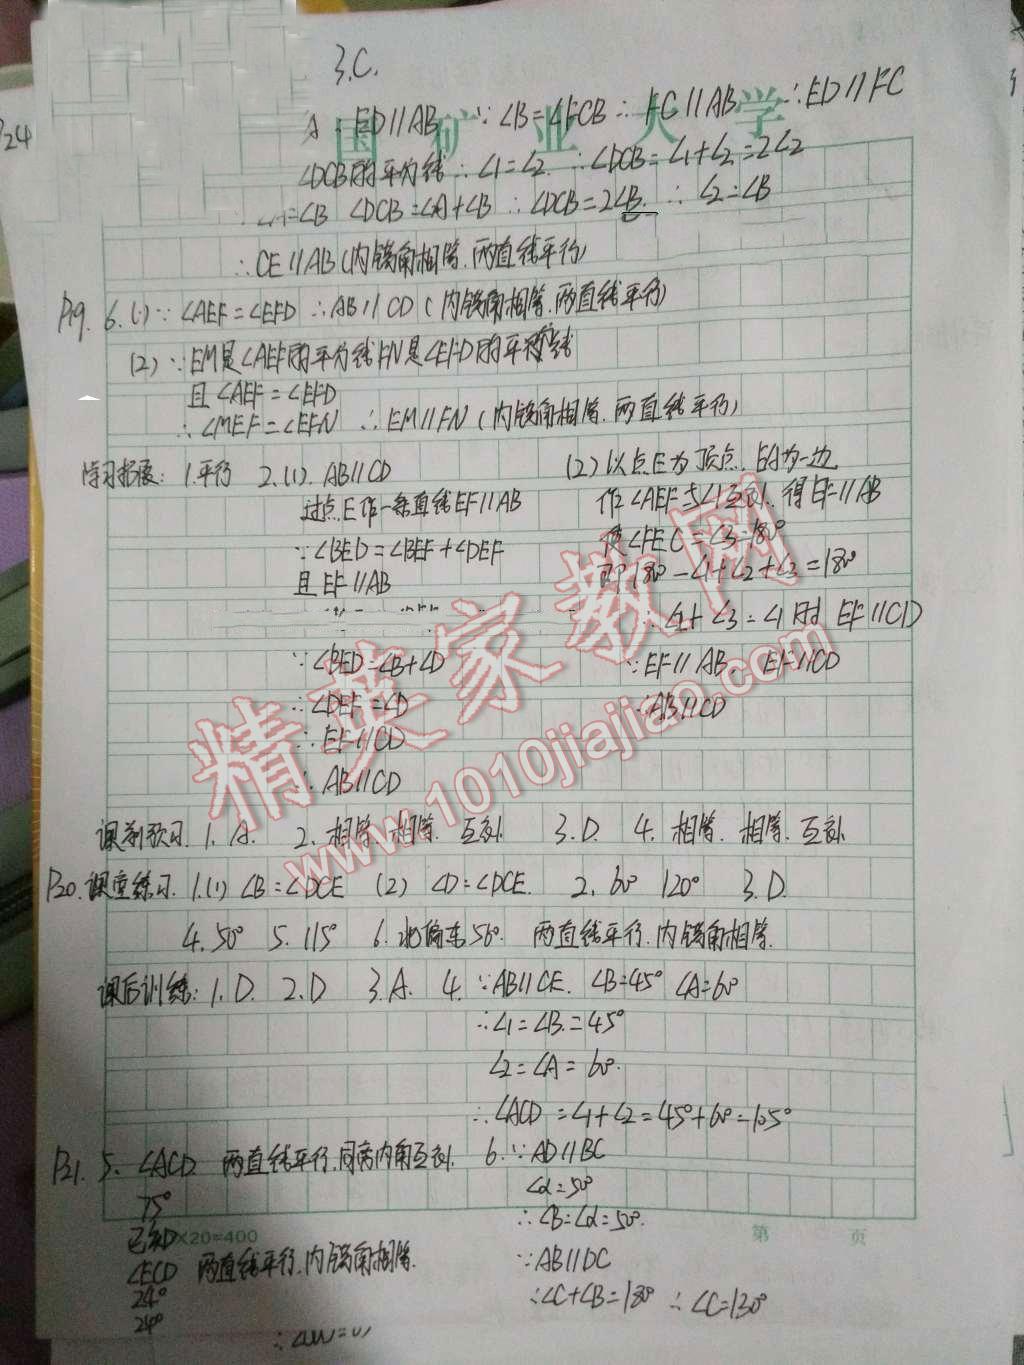 P24
3.C.
国 矿 业 大 学
ED∥AB ∵∠B=∠FCB ∴FC∥AB ∴ED∥FC
∠DCB的平分线 ∴∠1=∠2 ∴∠DCB=∠1+∠2=2∠2
=∠B ∠DCB=∠A+∠B ∴∠DCB=2∠B ∴∠2=∠B
∴CE∥AB(内错角相等.两直线平行)
P19. 6.(1)∵∠AEF=∠EFD ∴AB∥CD(内错角相等.两直线平行)
(2)∵EM是∠AEF的平分线 FN是∠EFD的平分线
且∠AEF=∠EFD
∴∠MEF=∠EFN ∴EM∥FN(内错角相等.两直线平行)
1.平行 2.(1).AB∥CD
过点E作一条直线EF∥AB
∵∠BED=∠BEF+∠DEF
且EF∥AB
∵∠BED=∠B+∠D
∴∠DEF=∠D
∴EF∥CD
∴AB∥CD
(2)以点E为顶点.EA为一边
作∠AEF与∠1互补.得EF∥AB
使∠FEC=∠3=180°
即180°-∠1+∠2+∠3=180°
∴∠2+∠3=∠1时 EF∥CD
∵EF∥AB EF∥CD
∴AB∥CD
课前预习.1.A. 2.相等.相等.互补. 3.D. 4.相等.相等.互补
P20.课堂练习.1.(1)∠B=∠DCE (2)∠D=∠DCE. 2.60° 120° 3.D.
4.50° 5.115° 6.北偏东56° 两直线平行.内错角相等.
课后训练:1.D. 2.D 3.A. 4.∵AB∥CE.∠B=45° ∠A=60°
∴∠1=∠B=45°
∠2=∠A=60°.
∴∠ACD=∠1+∠2=45°+60°=105°
P21. 5.∠ACD 两直线平行.同旁内角互补.
75°
已知
∠ECD 两直线平行.内错角相等.
24°
24°
6.∵AD∥BC
∠α=50°
∴∠B=∠α=50°.
∵AB∥DC
∴∠C+∠B=180° ∴∠C=130°
×20=400
第 页
精英家教网
www.1010jiajiao.com